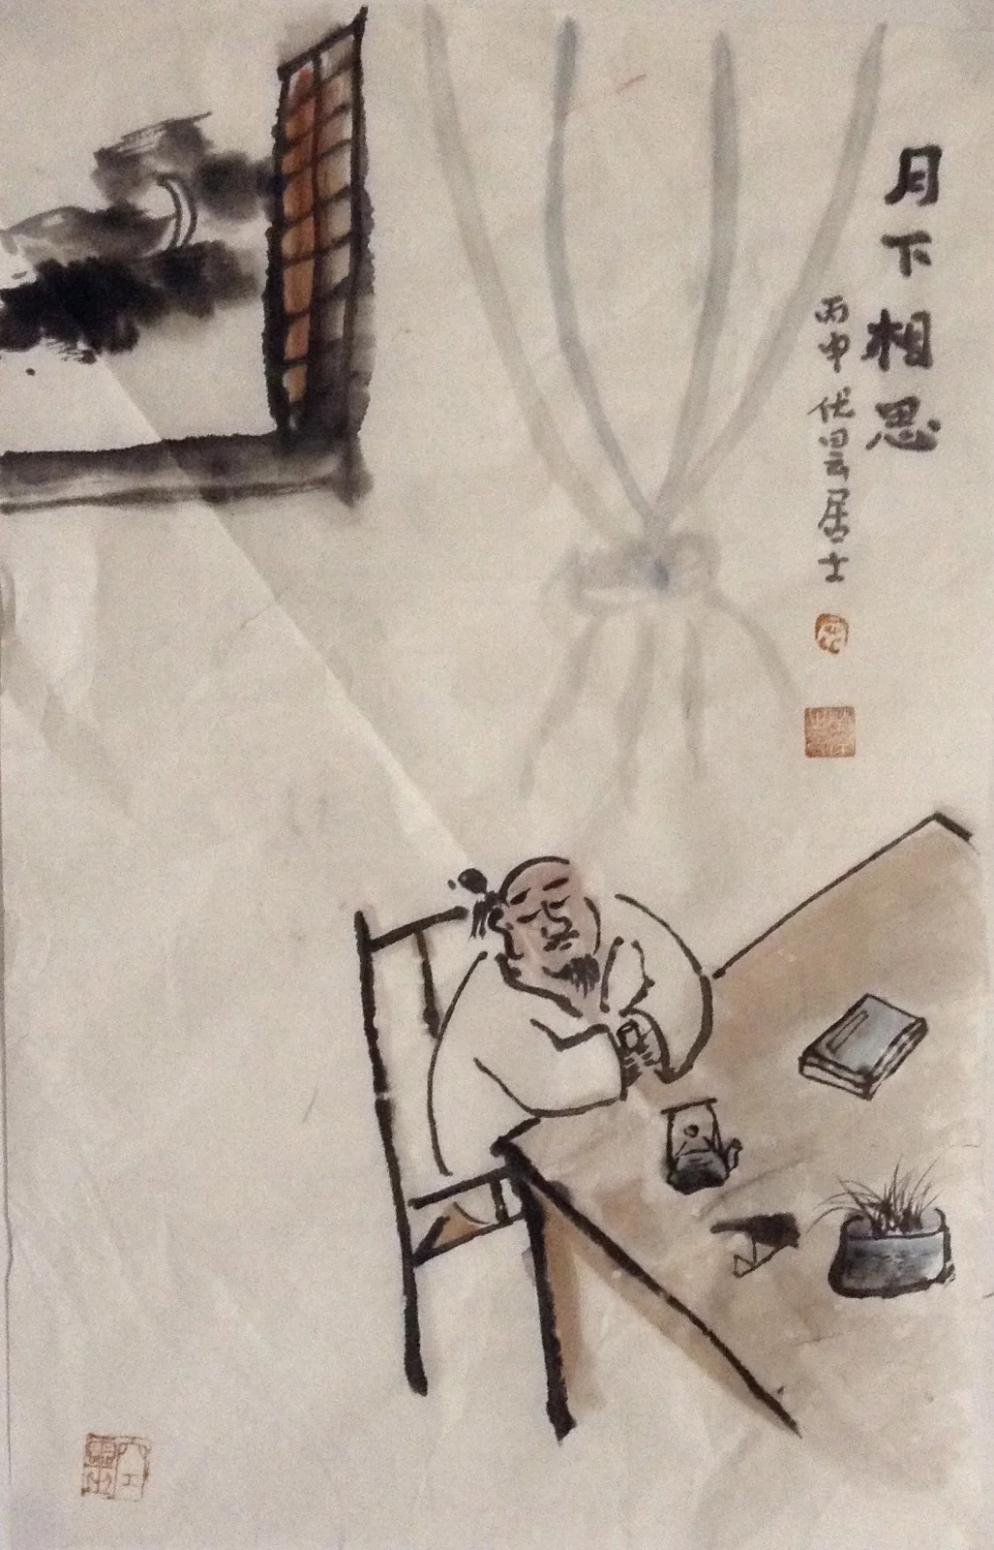 月下相思
丙申伏昙居士